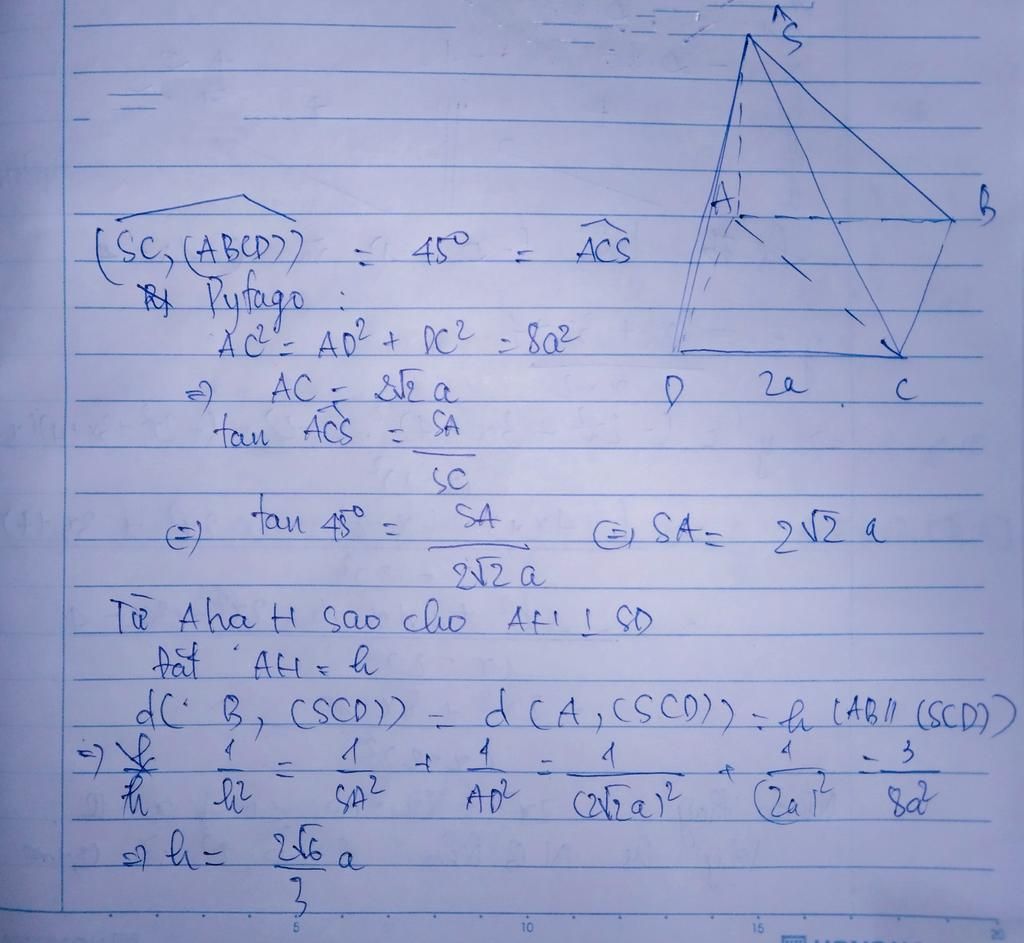 S
A
B
D 2a C
(SC, (ABCD)) = 45° = ACS
Pytago :
AC² = AD² + DC² = 8a²
=) AC = 2√2 a
tan ACS = SA/SC
(=) tan 45° = SA/2√2 a (=) SA = 2√2 a
Từ A hạ H sao cho AH ⊥ SD
Đặt AH = h
d( B, (SCD)) = d (A, (SCD)) = h (AB// (SCD))
=) 1/h² = 1/SA² + 1/AD² = 1/(2√2a)² + 1/(2a)² = 3/8a²
=) h = 2√6/3 a
5 10 15 20